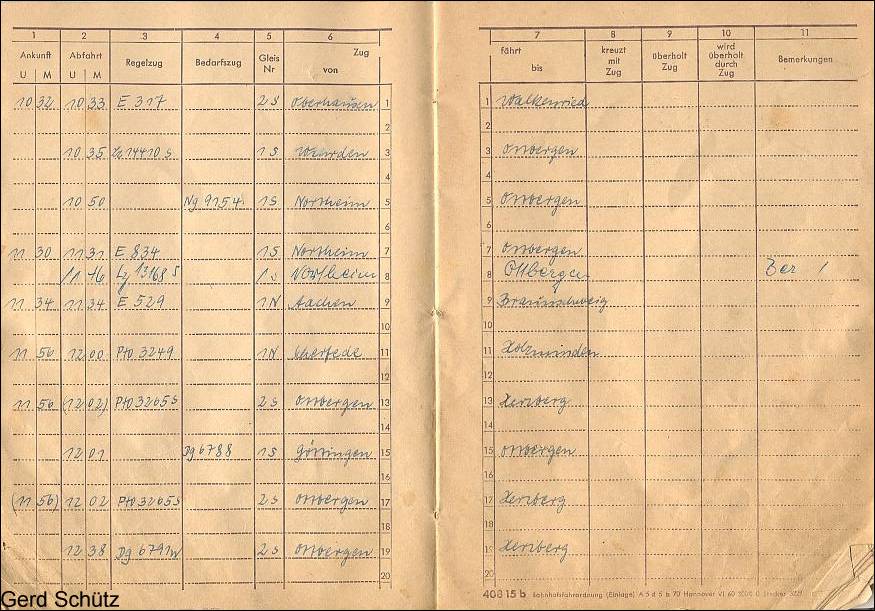 1 2 3 4 5 6 7 8 9 10 11
Ankunft Abfahrt Regelzug Bedarfszug Gleis Nr Zug von fährt bis kreuzt mit Zug überholt Zug wird überholt durch Zug Bemerkungen
U M U M
10 32 10 33 E 317 2 S Oberhausen 1 1 Walkenried
2 2
10 35 14410 S 1 S Wehrden 3 3 Ottbergen
4 4
10 50 Ng 9154 1 S Northeim 5 5 Ottbergen
6 6
11 30 11 31 E 834 1 S Northeim 7 7 Ottbergen
11 16 Lz 13168 S 1 S Northeim 8 8 Ottbergen
11 34 11 34 E 529 1 N Aachen 9 9 Braunschweig
10 10
11 56 12 00 Pto 3249 1 N Scherfede 11 11 Holzminden
12 12
11 56 (12 02) Pto 3265 S 2 S Ottbergen 13 13 Herzberg
14 14
12 01 Dg 6788 1 S Göttingen 15 15 Ottbergen
16 16
(11 56) 12 02 Pto 3265 S 2 S Ottbergen 17 17 Herzberg
18 18
12 38 Dg 6791 2 S Ottbergen 19 19 Herzberg
20 20
408 15 b Bahnhofsfahrordnung (Einlage) A 5 d 5 b 70 Hannover VI 60
Gerd Schütz